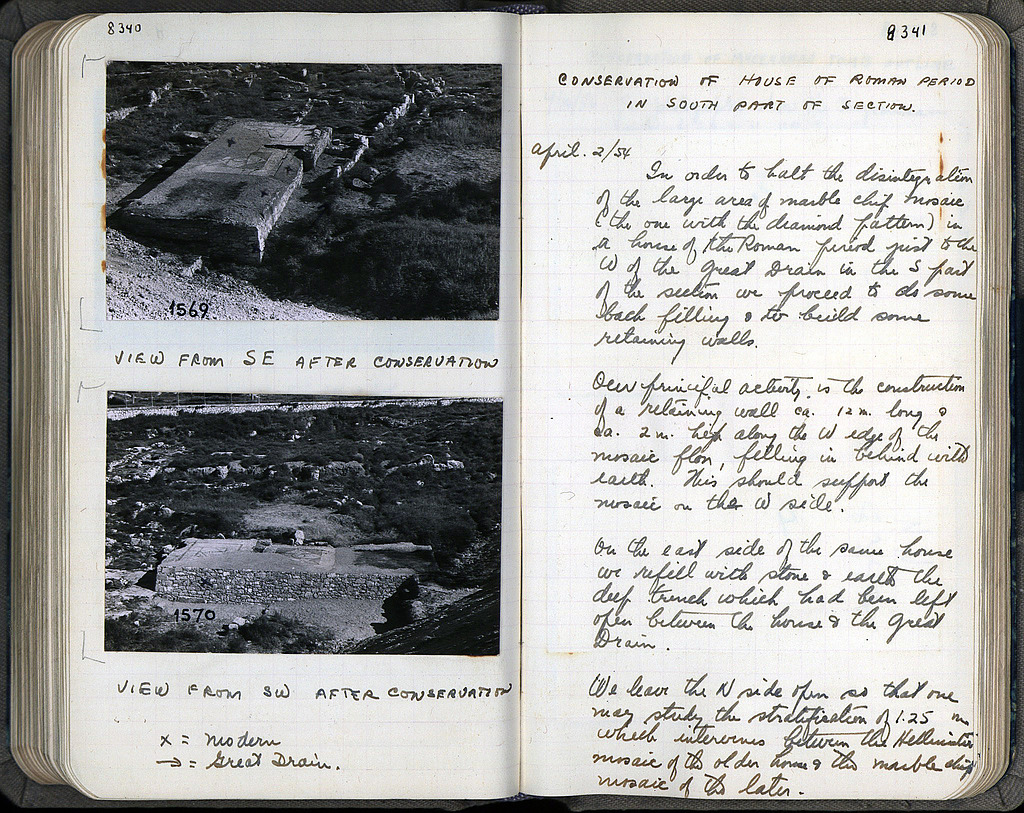 8340
1569
VIEW FROM SE AFTER CONSERVATION
1570
VIEW FROM SW AFTER CONSERVATION
x = modern
→ = Great Drain.
8341
CONSERVATION OF HOUSE OF ROMAN PERIOD
IN SOUTH PART OF SECTION.
April. 2/54
In order to halt the disintegration
of the large area of marble chip mosaic
(the one with the diamond pattern) in
a house of the Roman period just to the
W of the Great Drain in the S part
of the section we proceed to do some
back filling & to build some
retaining walls.
Our principal activity is the construction
of a retaining wall ca. 12 m. long &
ca. 2 m. high along the W edge of the
mosaic floor, filling in behind with
earth. This should support the
mosaic on the W side.
On the east side of the same house
we refill with stone & earth the
deep trench which had been left
open between the house & the Great
Drain.
We leave the N side open so that one
may study the stratification of 1.25 m
which intervenes between the Hellenistic
mosaic of the older house & the marble chip
mosaic of the later.